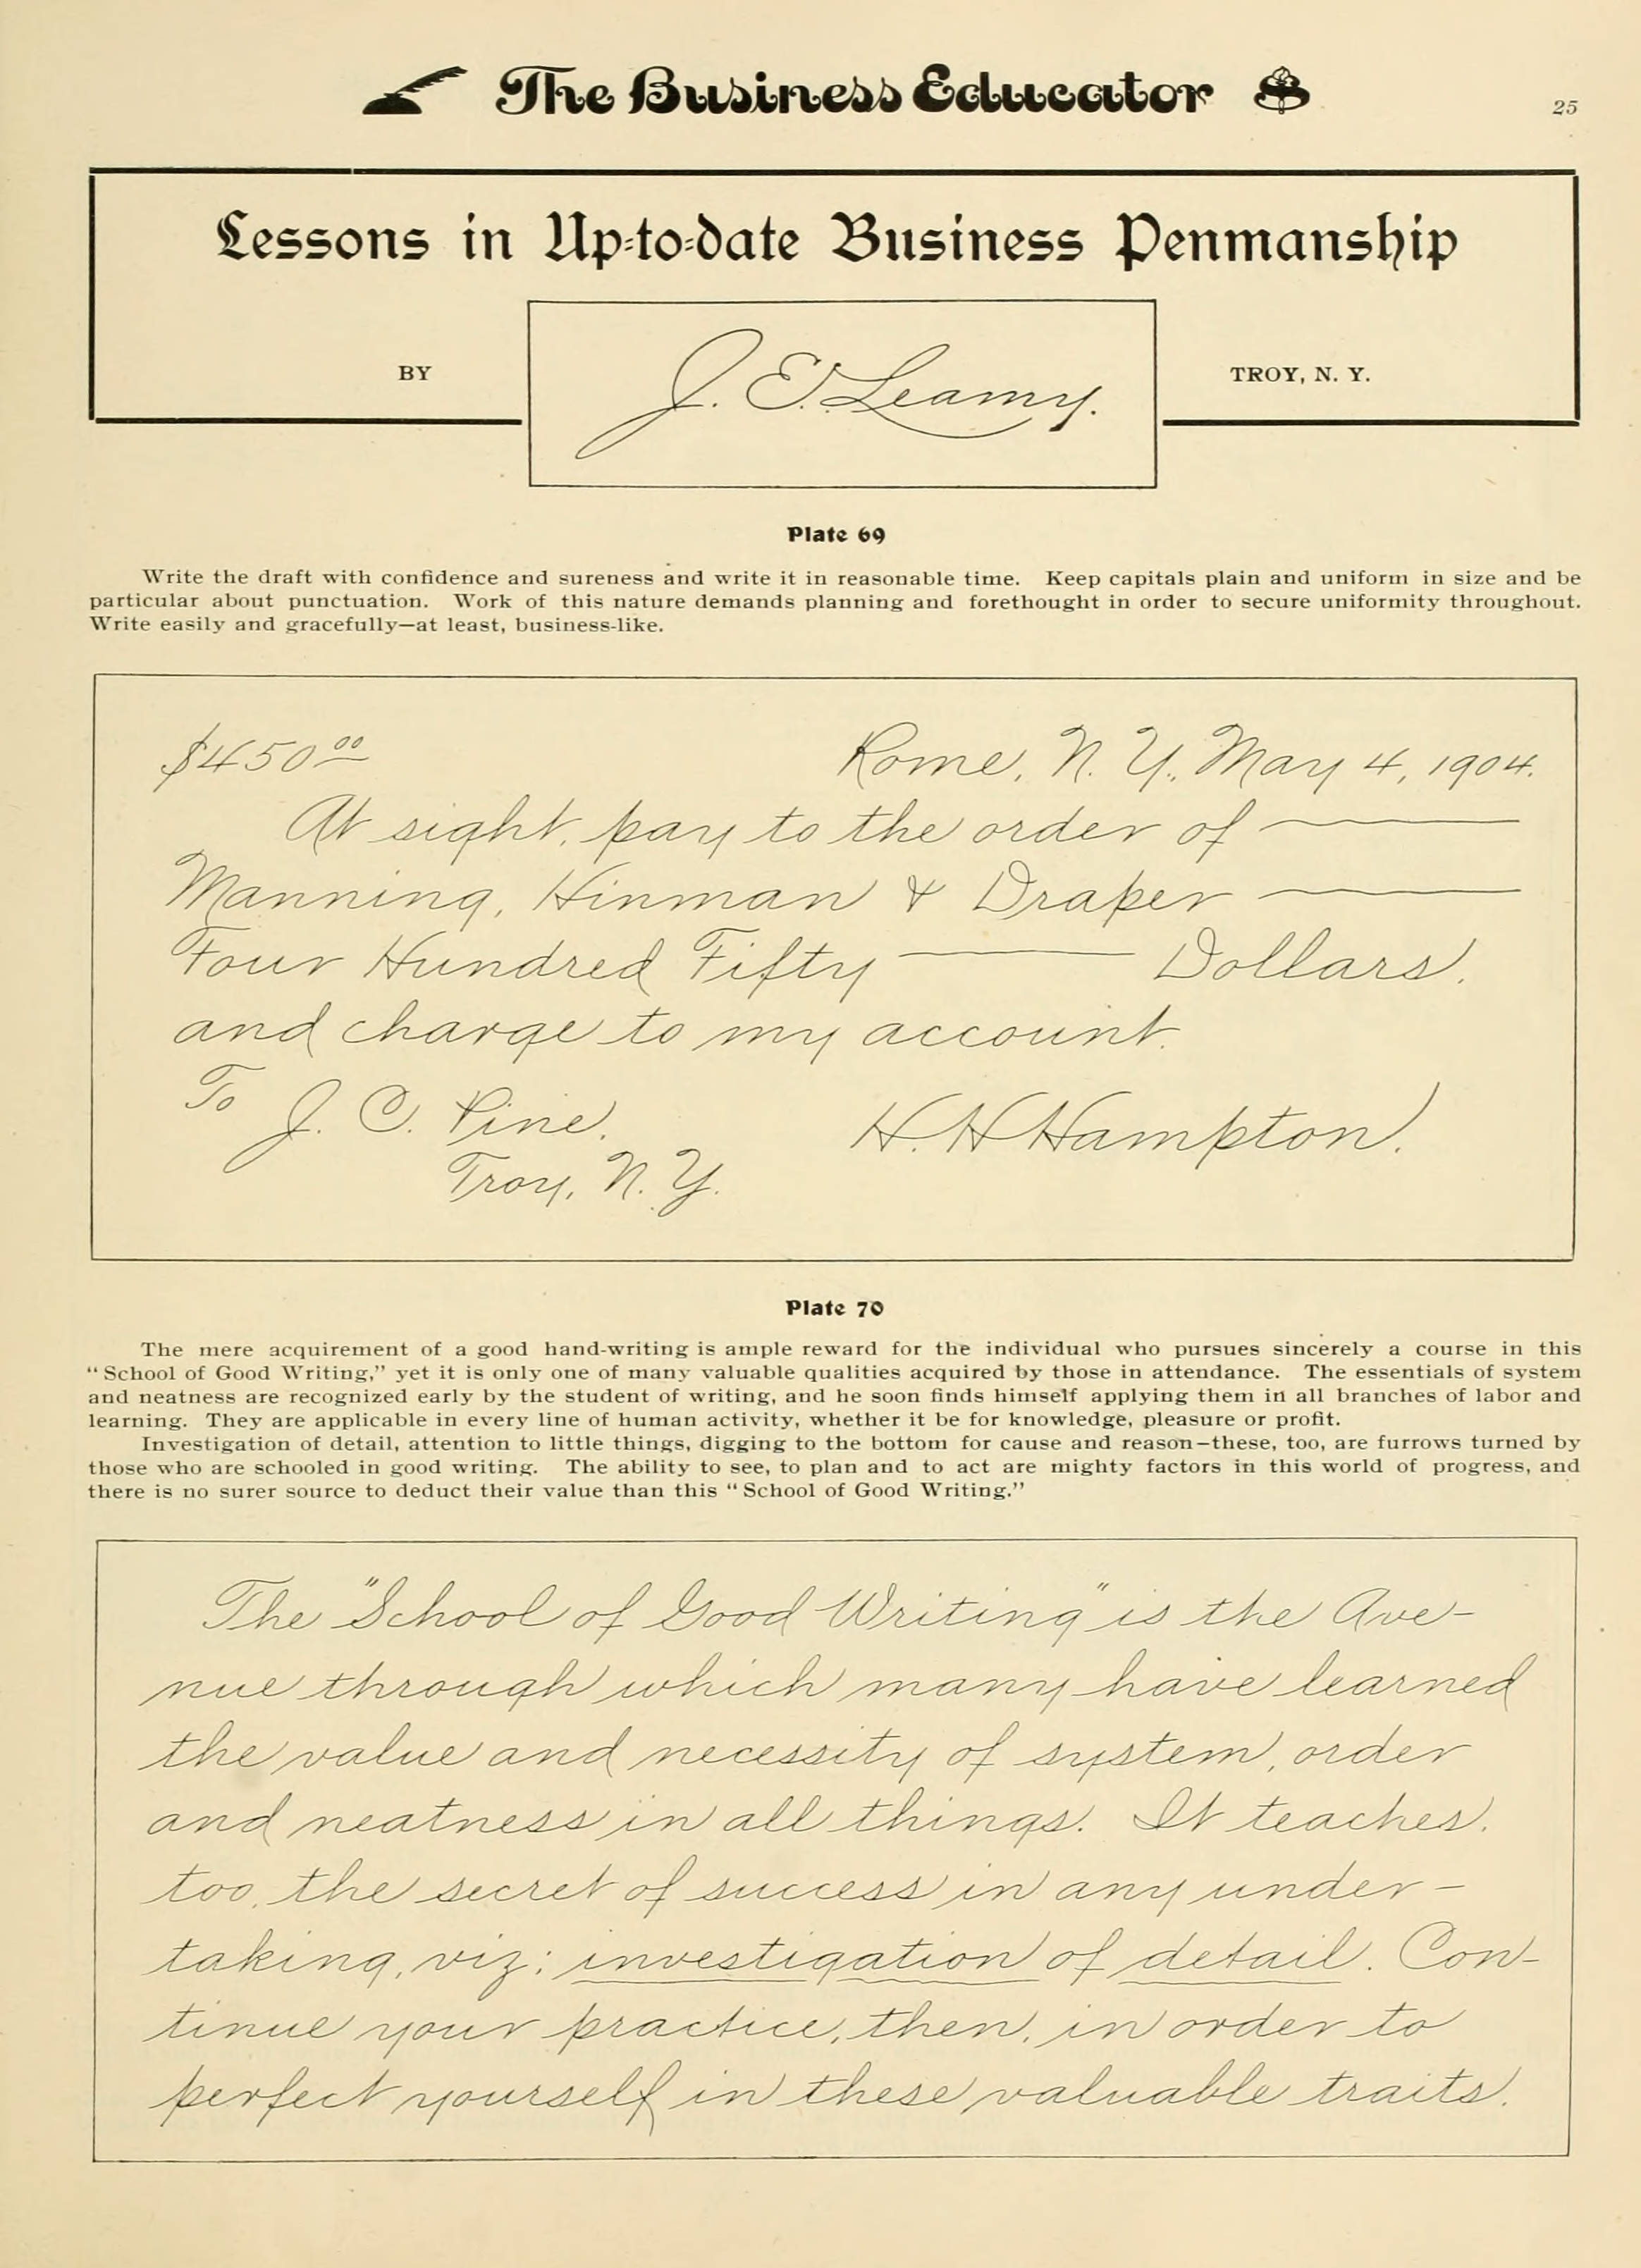 The Business Educator
25
Lessons in Up-to-date Business Penmanship
BY
J. E. Leamy.
TROY, N. Y.
Plate 69
Write the draft with confidence and sureness and write it in reasonable time. Keep capitals plain and uniform in size and be
particular about punctuation. Work of this nature demands planning and forethought in order to secure uniformity throughout.
Write easily and gracefully—at least, business-like.
$450.00
Rome, N. Y., May 4, 1904.
At sight, pay to the order of
Manning, Hinman & Draper
Four Hundred Fifty Dollars,
and charge to my account.
To
J. C. Pine,
H. H Hampton.
Troy, N. Y.
Plate 70
The mere acquirement of a good hand-writing is ample reward for the individual who pursues sincerely a course in this
"School of Good Writing," yet it is only one of many valuable qualities acquired by those in attendance. The essentials of system
and neatness are recognized early by the student of writing, and he soon finds himself applying them in all branches of labor and
learning. They are applicable in every line of human activity, whether it be for knowledge, pleasure or profit.
Investigation of detail, attention to little things, digging to the bottom for cause and reason—these, too, are furrows turned by
those who are schooled in good writing. The ability to see, to plan and to act are mighty factors in this world of progress, and
there is no surer source to deduct their value than this "School of Good Writing."
The "School of Good Writing" is the Ave-
nue through which many have learned
the value and necessity of system, order
and neatness in all things. It teaches,
too, the secret of success in any under-
taking, viz; investigation of detail. Con-
tinue your practice, then, in order to
perfect yourself in these valuable traits.